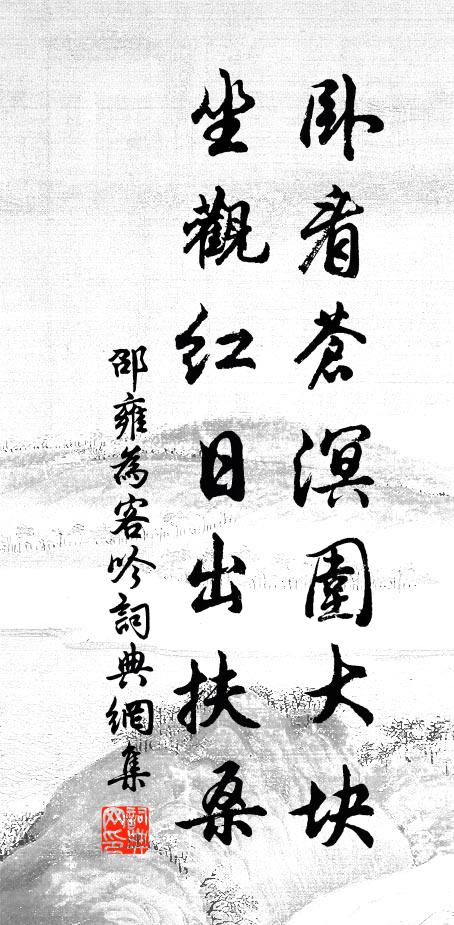 卧看蒼溟圍大块
坐觀紅日出扶桑
邵雍為客吟詞典網集